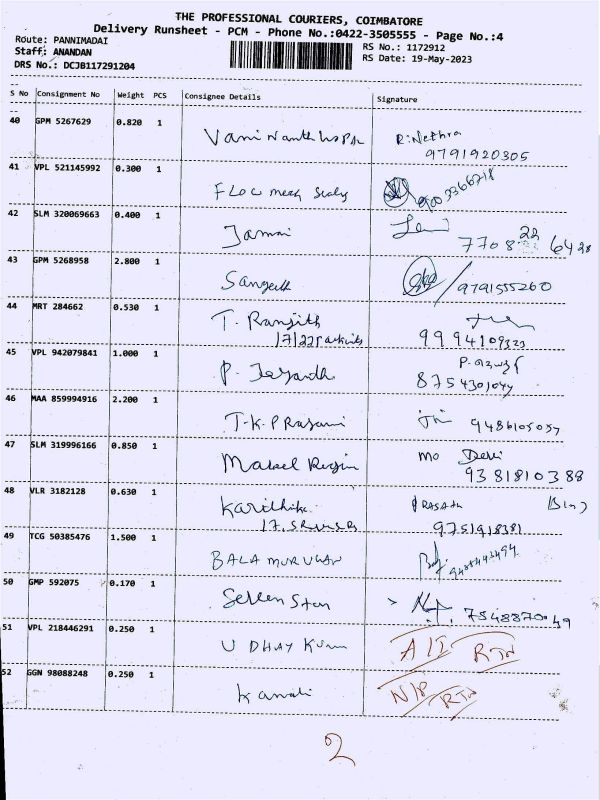 THE PROFESSIONAL COURIERS, COIMBATORE
Delivery Runsheet - PCM - Phone No.:0422-3505555 - Page No.:4
Route: PANNIMADAI
RS No.: 1172912
Staff: ANANDAN
RS Date: 19-May-2023
DRS No.: DCJB117291204
S No Consignment No Weight PCS Consignee Details Signature
40 GPM 5267629 0.820 1 R. Nethra
9791920305
41 VPL 521145992 0.300 1 Flow mech
42 SLM 320069663 0.400 1
43 GPM 5268958 2.800 1 Sangeeth 9791555260
44 MRT 284662 0.530 1 T. Ranjith
9994109323
45 VPL 942079841 1.000 1
8754301044
46 MAA 859994916 2.200 1 9486105057
47 SLM 319996166 0.850 1 Devi
9381810388
48 VLR 3182128 0.630 1 Karithika
9751918381
49 TCG 50385476 1.500 1 BALA MURUGAN
50 GMP 592075 0.170 1 7548870049
51 VPL 218446291 0.250 1 UDHAY RTN
52 GGN 98088248 0.250 1 RTN
2